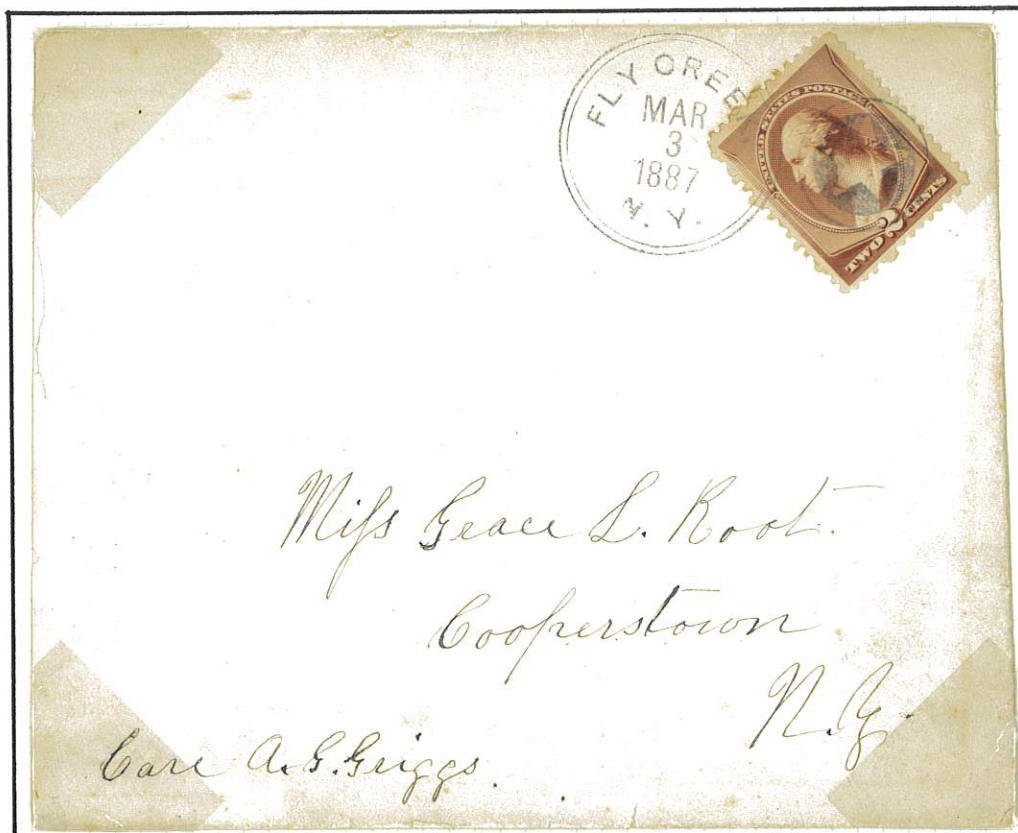 FLY CREE
MAR
3
1887
N.Y.
UNITED STATES POSTAGE
TWO 2 CENTS
Miss Grace L. Root.
Cooperstown
N.Y.
Care A.G. Griggs.